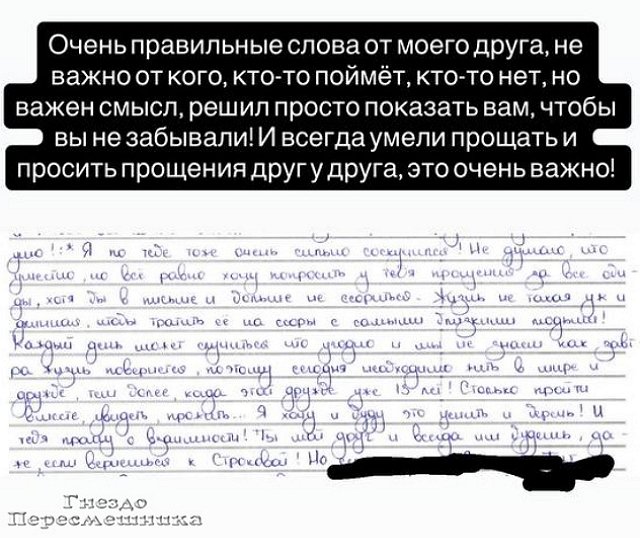 Очень правильные слова от моего друга, не
важно от кого, кто-то поймёт, кто-то нет, но
важен смысл, решил просто показать вам, чтобы
вы не забывали! И всегда умели прощать и
просить прощения друг у друга, это очень важно!
:* Я по тебе тоже очень сильно соскучился! Не думаю, что
уместно, но всё равно хочу попросить у тебя прощения за все оби-
ды, хотя бы в письме и больше не ссориться. Жизнь не такая уж и
длинная, чтобы тратить её на ссоры с самыми близкими людьми!
Каждый день может случиться что угодно и мы не знаем как завт
ра жизнь повернется, поэтому сегодня необходимо жить в мире и
дружбе, тем более, когда этой дружбе уже 13 лет! Столько пройти
вместе, увидеть, прожить... Я хочу и буду это ценить и беречь! И
тебя прошу о взаимности! Ты мой друг и всегда им будешь, да-
же, если вернешься к Строковой! Но
Гнездо
Пересмешника